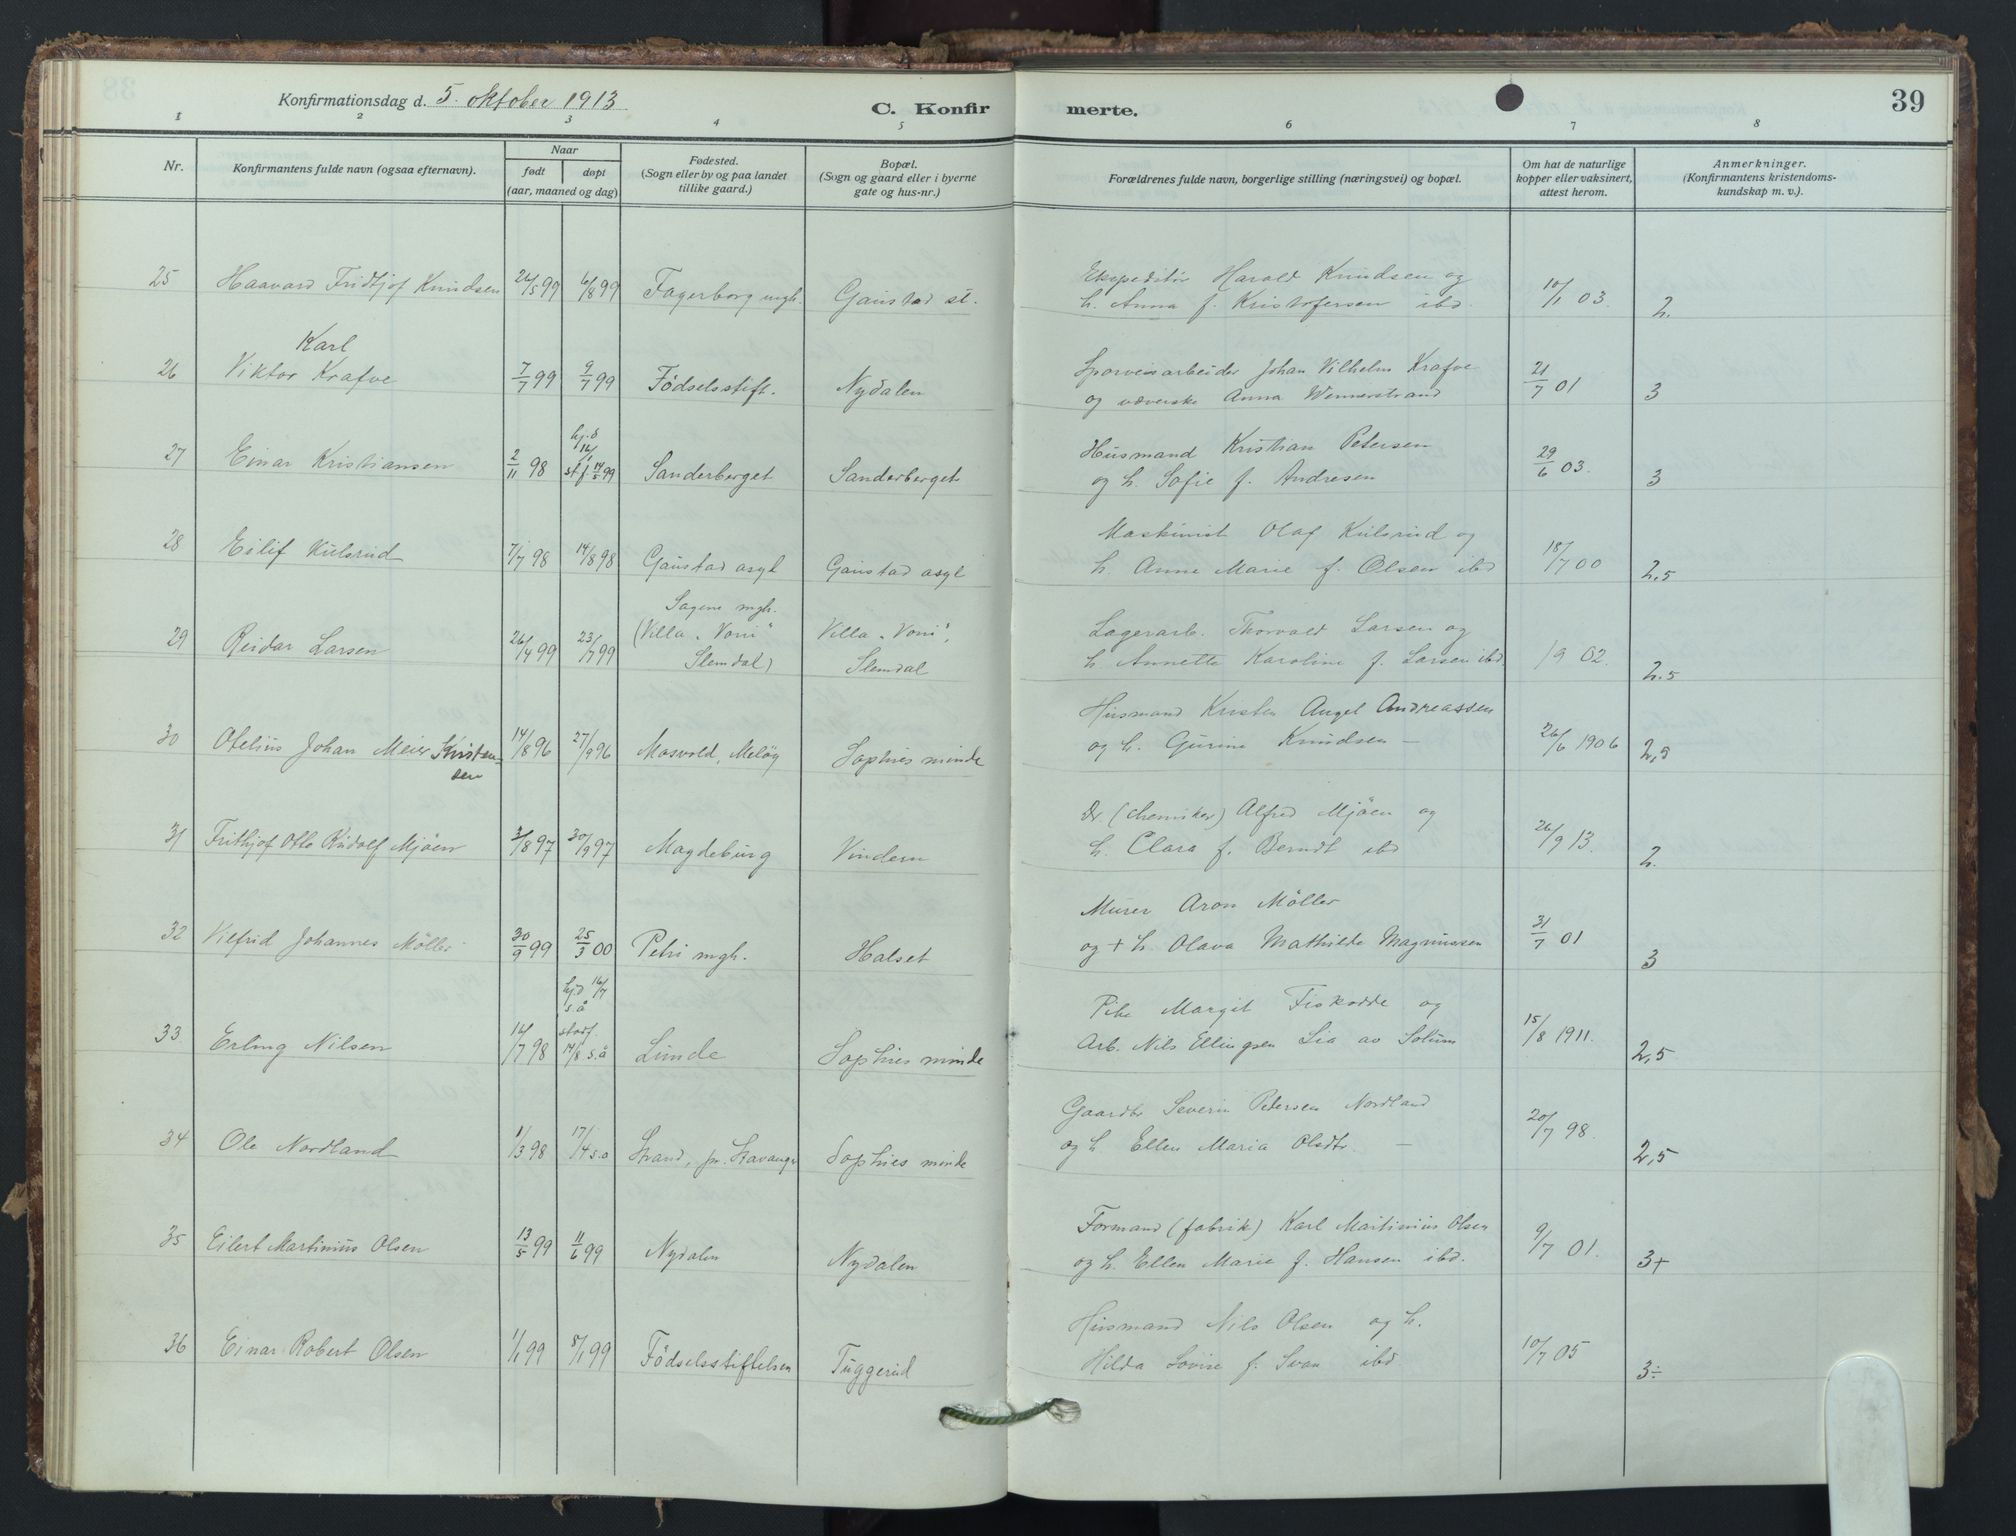 Konfirmationsdag d. 5. oktober 1913
C. Konfirmerte.
39
1 2 3 4 5 6 7 8
Nr.
Konfirmantens fulde navn (ogsaa efternavn).
Naar
født døpt
(aar, maaned og dag)
Fødested.
(Sogn eller by og paa landet
tillike gaard.)
Bopæl.
(Sogn og gaard eller i byerne
gate og hus-nr.)
Forældrenes fulde navn, borgerlige stilling (næringsvei) og bopæl.
Om hat de naturlige
kopper eller vaksinert,
attest herom.
Anmerkninger.
(Konfirmantens kristendoms-
kundskap m. v.).
25 Haavard Fridtjof Knudsen 26/5 99 6/8 99 Fagerborg mgh. Gaustad st.
Ekspeditør Harald Knudsen og
h. Anna f. Kristofersen ibd.
10/1 03. 2.
26 Viktor Karl Krafve 7/7 99 9/7 99 Födselsstift. Nydalen
Sporveisarbeider Johan Vilhelm Krafve
og væverske Anna Wennerstrand
21/7 01 3
27 Einar Kristiansen 2/11 98 hj.d st.f. 14/5 99 Sanderberget Sanderberget
Husmand Kristian Petersen
og h. Sofie f. Andresen
29/6 03. 3
28 Eilif Kulsrud 7/7 98 14/8 98 Gaustad asyl Gaustad asyl
Maskinist Olaf Kulsrud og
h. Anne Marie f. Olsen ibd
18/7 00 2,5
29 Reidar Larsen 26/4 99 23/7 99
Sagene mgh.
(Villa "Voni"
Slemdal)
Villa "Voni",
Slemdal
Lagerarb. Thorvald Larsen og
h. Annette Karoline f. Larsen ibd
/9 02. 2.5
30 Otelius Johan Meier Kristen-
sen
14/8 96 27/9 96 Masvold, Meløy Sophies minde
Husmand Kristen Angel Andreassen
og h. Gurine Knudsen —
26/6 1906 2,5
31 Frithjof Otto Rudolf Mjöen 31/8 97 30/9 97 Magdeburg Vindern
Dr (chemiker) Alfred Mjöen og
h. Clara f. Berndt ibd
26/9 13. 2.
32 Vilfrid Johannes Möller 30/9 99 25/3 00 Petri mgh. Halset
Murer Aron Möller
og + h. Olava Mathilde Magnussen
31/7 01 3
33 Erling Nilsen 16/7 98
hj.d 16/7
s.å
stadf.
14/8 s.å
Lunde Sophies minde
Pike Margit Fiskodde og
Arb. Nils Ellingsen Lia av Solum
15/8 1911. 2,5
34 Ole Nordland 1/3 98 17/4 s.a Strand, pr. Stavanger Sophies minde
Gaardbr Severin Petersen Nordland
og h. Ellen Maria Olsdtr. —
20/7 98. 2,5
35 Eilert Martinius Olsen 13/5 99 11/6 99 Nydalen Nydalen
Formand (fabrik) Karl Martinius Olsen
og h. Ellen Marie f. Hansen ibd.
9/7 01. 3+
36 Einar Robert Olsen 1/1 99 8/1 99 Födselsstiftelsen Tuggerud
Husmand Nils Olsen og h.
Hilda Lovise f. Svan ibd.
10/7 05 3÷